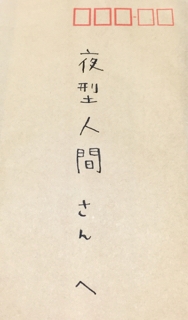 夜型人間さんへ